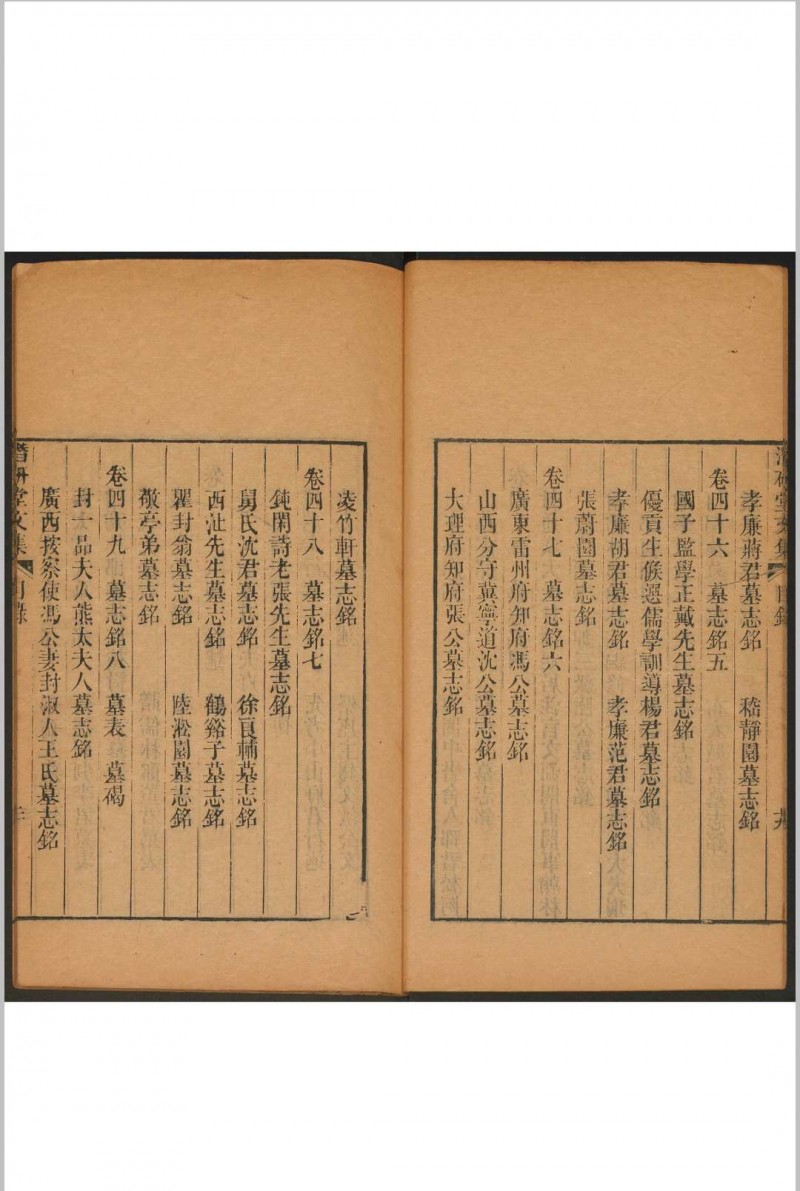 潛研堂文集 目錄
孝廉蔣君墓志銘 嵇靜園墓志銘
卷四十六 墓志銘五
國子監學正戴先生墓志銘
優貢生候選儒學訓導楊君墓志銘
孝廉胡君墓志銘 孝廉范君墓志銘
張蔚園墓志銘
卷四十七 墓志銘六
廣東雷州府知府馮公墓志銘
山西分守冀寧道沈公墓志銘
大理府知府張公墓志銘
凌竹軒墓志銘
卷四十八 墓志銘七
鈍閑詩老張先生墓志銘
舅氏沈君墓志銘 徐良輔墓志銘
西沚先生墓志銘 鶴谿子墓志銘
瞿封翁墓志銘 陸淞園墓志銘
敬亭弟墓志銘
卷四十九 墓志銘八 墓表 墓碣
封一品夫人熊太夫人墓志銘
廣西按察使馮公妻封淑人王氏墓志銘
潛研堂文集 目錄